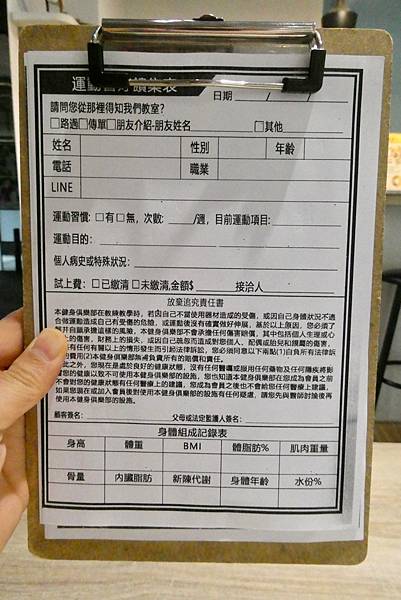 運動喜好調集表
日期 / /
請問您從那裡得知我們教室?
□路過□傳單□朋友介紹-朋友姓名 □其他
姓名 性別 年齡
電話 職業
LINE
運動習慣: □有□無, 次數: /週, 目前運動項目:
運動目的:
個人病史或特殊狀況:
試上費: □已繳清□未繳清,金額$ 接洽人
放棄追究責任書
本健身俱樂部在教練教學時，若因自己不當使用器材造成的受傷，或因自己身體狀況不適
合做運動造成自己有受傷的危險，或運動後沒有確實做好伸展，基於以上原因，您必須了
解並自願承擔這樣的風險，本健身俱樂部不會承擔任何傷害賠償，其中包括個人生理或心
的傷害，財務上的損失，或因自己疏忽而造成對您個人、配偶或胎兒和親屬的傷害，
有任何有關以上的情形發生而引起法律訴訟，您必須同意以下兩點(1)自負所有法律訴
的費用(2)本健身俱樂部無須負責所有的賠償和責任。
此之外，您現在是處於良好的健康狀態，沒有任何醫囑或服用任何藥物及任何隱疾將影
您的健康以致不可使用本健身俱樂部的設施，您也知道本健身俱樂部在您成為會員之前
不會對您的健康狀態有任何醫療上的建議，您成為會員之後也不會給您任何醫療上建議，
如果您當在或加入會員後對使用本健身俱樂部的設施有任何疑慮，請您先與醫師討論後再
使用本健身俱樂部的設施。
顧客簽名: 父母或法定監護人簽名:
身體組成記錄表
身高 體重 BMI 體脂肪% 肌肉重量
骨量 內臟脂肪 新陳代謝 身體年齡 水份%